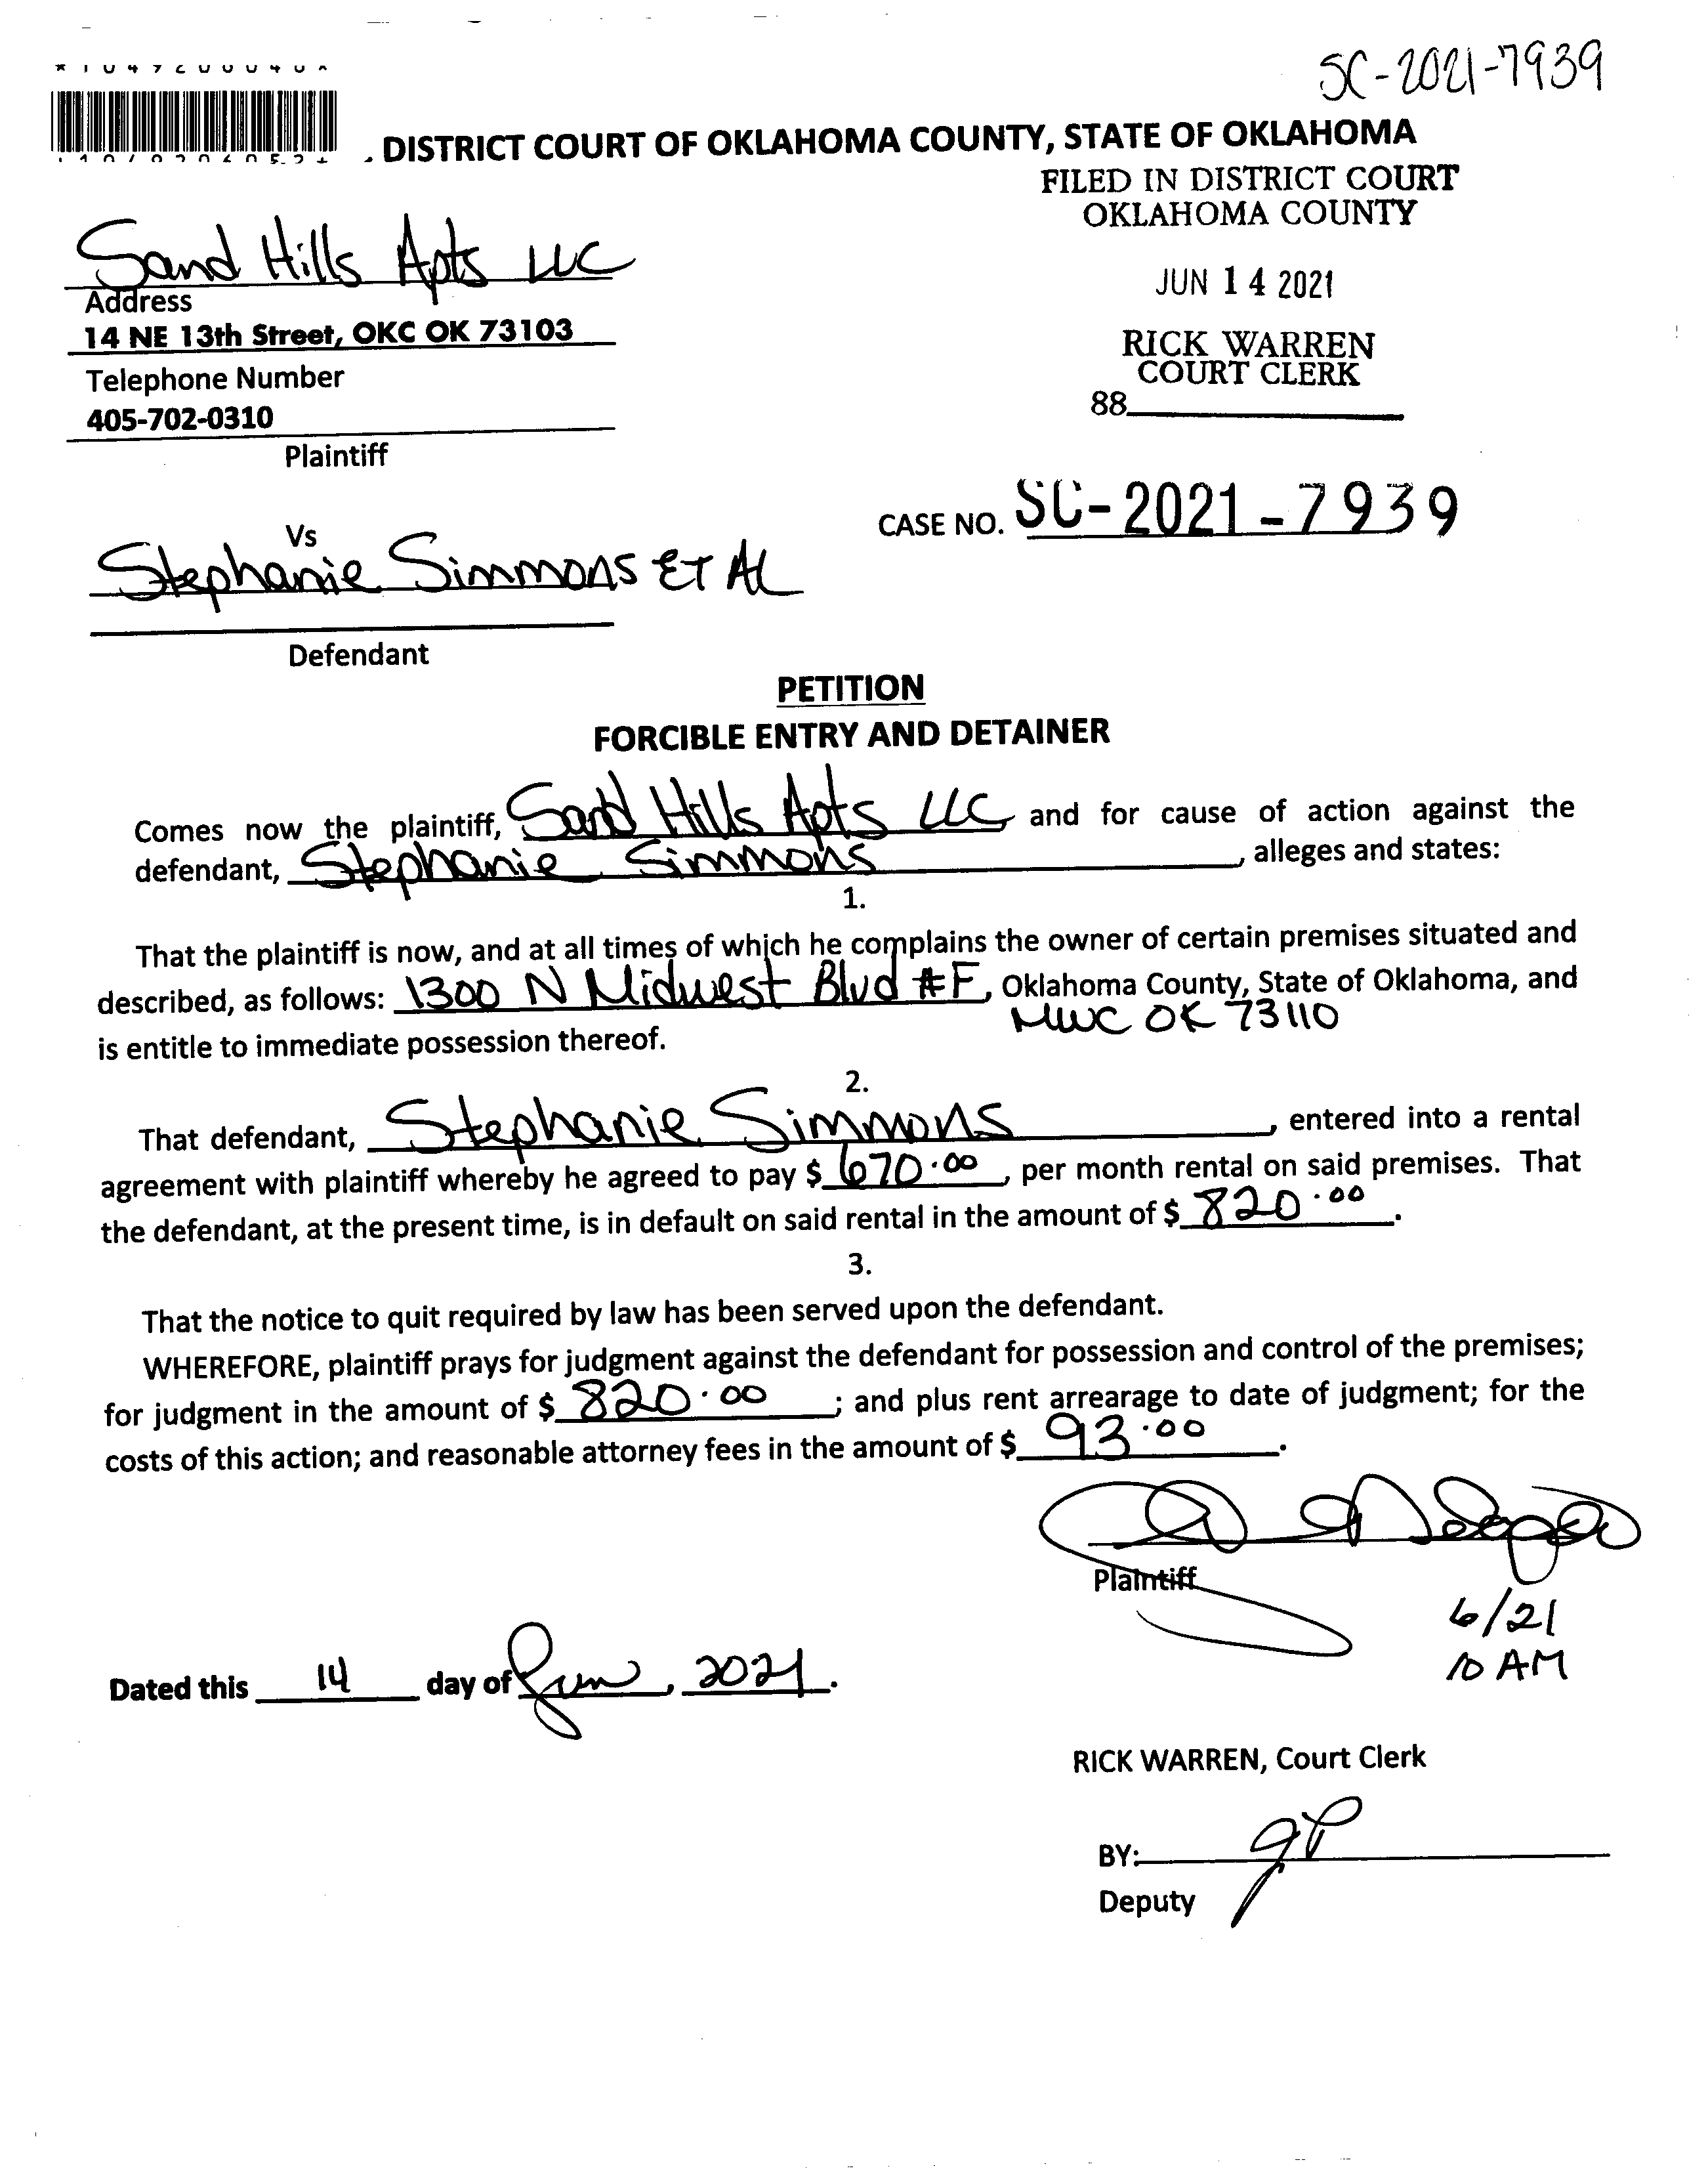 SC-2021-7939
DISTRICT COURT OF OKLAHOMA COUNTY, STATE OF OKLAHOMA
FILED IN DISTRICT COURT
OKLAHOMA COUNTY
JUN 14 2021
RICK WARREN
COURT CLERK
88
Sand Hills Apts LLC
Address
14 NE 13th Street, OKC OK 73103
Telephone Number
405-702-0310
Plaintiff
CASE NO. SC-2021-7939
Vs
Stephanie Simmons ET AL
Defendant
PETITION
FORCIBLE ENTRY AND DETAINER
Comes now the plaintiff, Sand Hills Apts LLC and for cause of action against the
defendant, Stephanie Simmons, alleges and states:
1.
That the plaintiff is now, and at all times of which he complains the owner of certain premises situated and
described, as follows: 1300 N Midwest Blvd #F, Oklahoma County, State of Oklahoma, and
MWC OK 73110
is entitle to immediate possession thereof.
2.
That defendant, Stephanie Simmons, entered into a rental
agreement with plaintiff whereby he agreed to pay $ 670.00, per month rental on said premises. That
the defendant, at the present time, is in default on said rental in the amount of $ 820.00.
3.
That the notice to quit required by law has been served upon the defendant.
WHEREFORE, plaintiff prays for judgment against the defendant for possession and control of the premises;
for judgment in the amount of $ 820.00; and plus rent arrearage to date of judgment; for the
costs of this action; and reasonable attorney fees in the amount of $ 93.00.
Plaintiff
6/21
10 AM
Dated this 14 day of Jun, 2021.
RICK WARREN, Court Clerk
BY:
Deputy